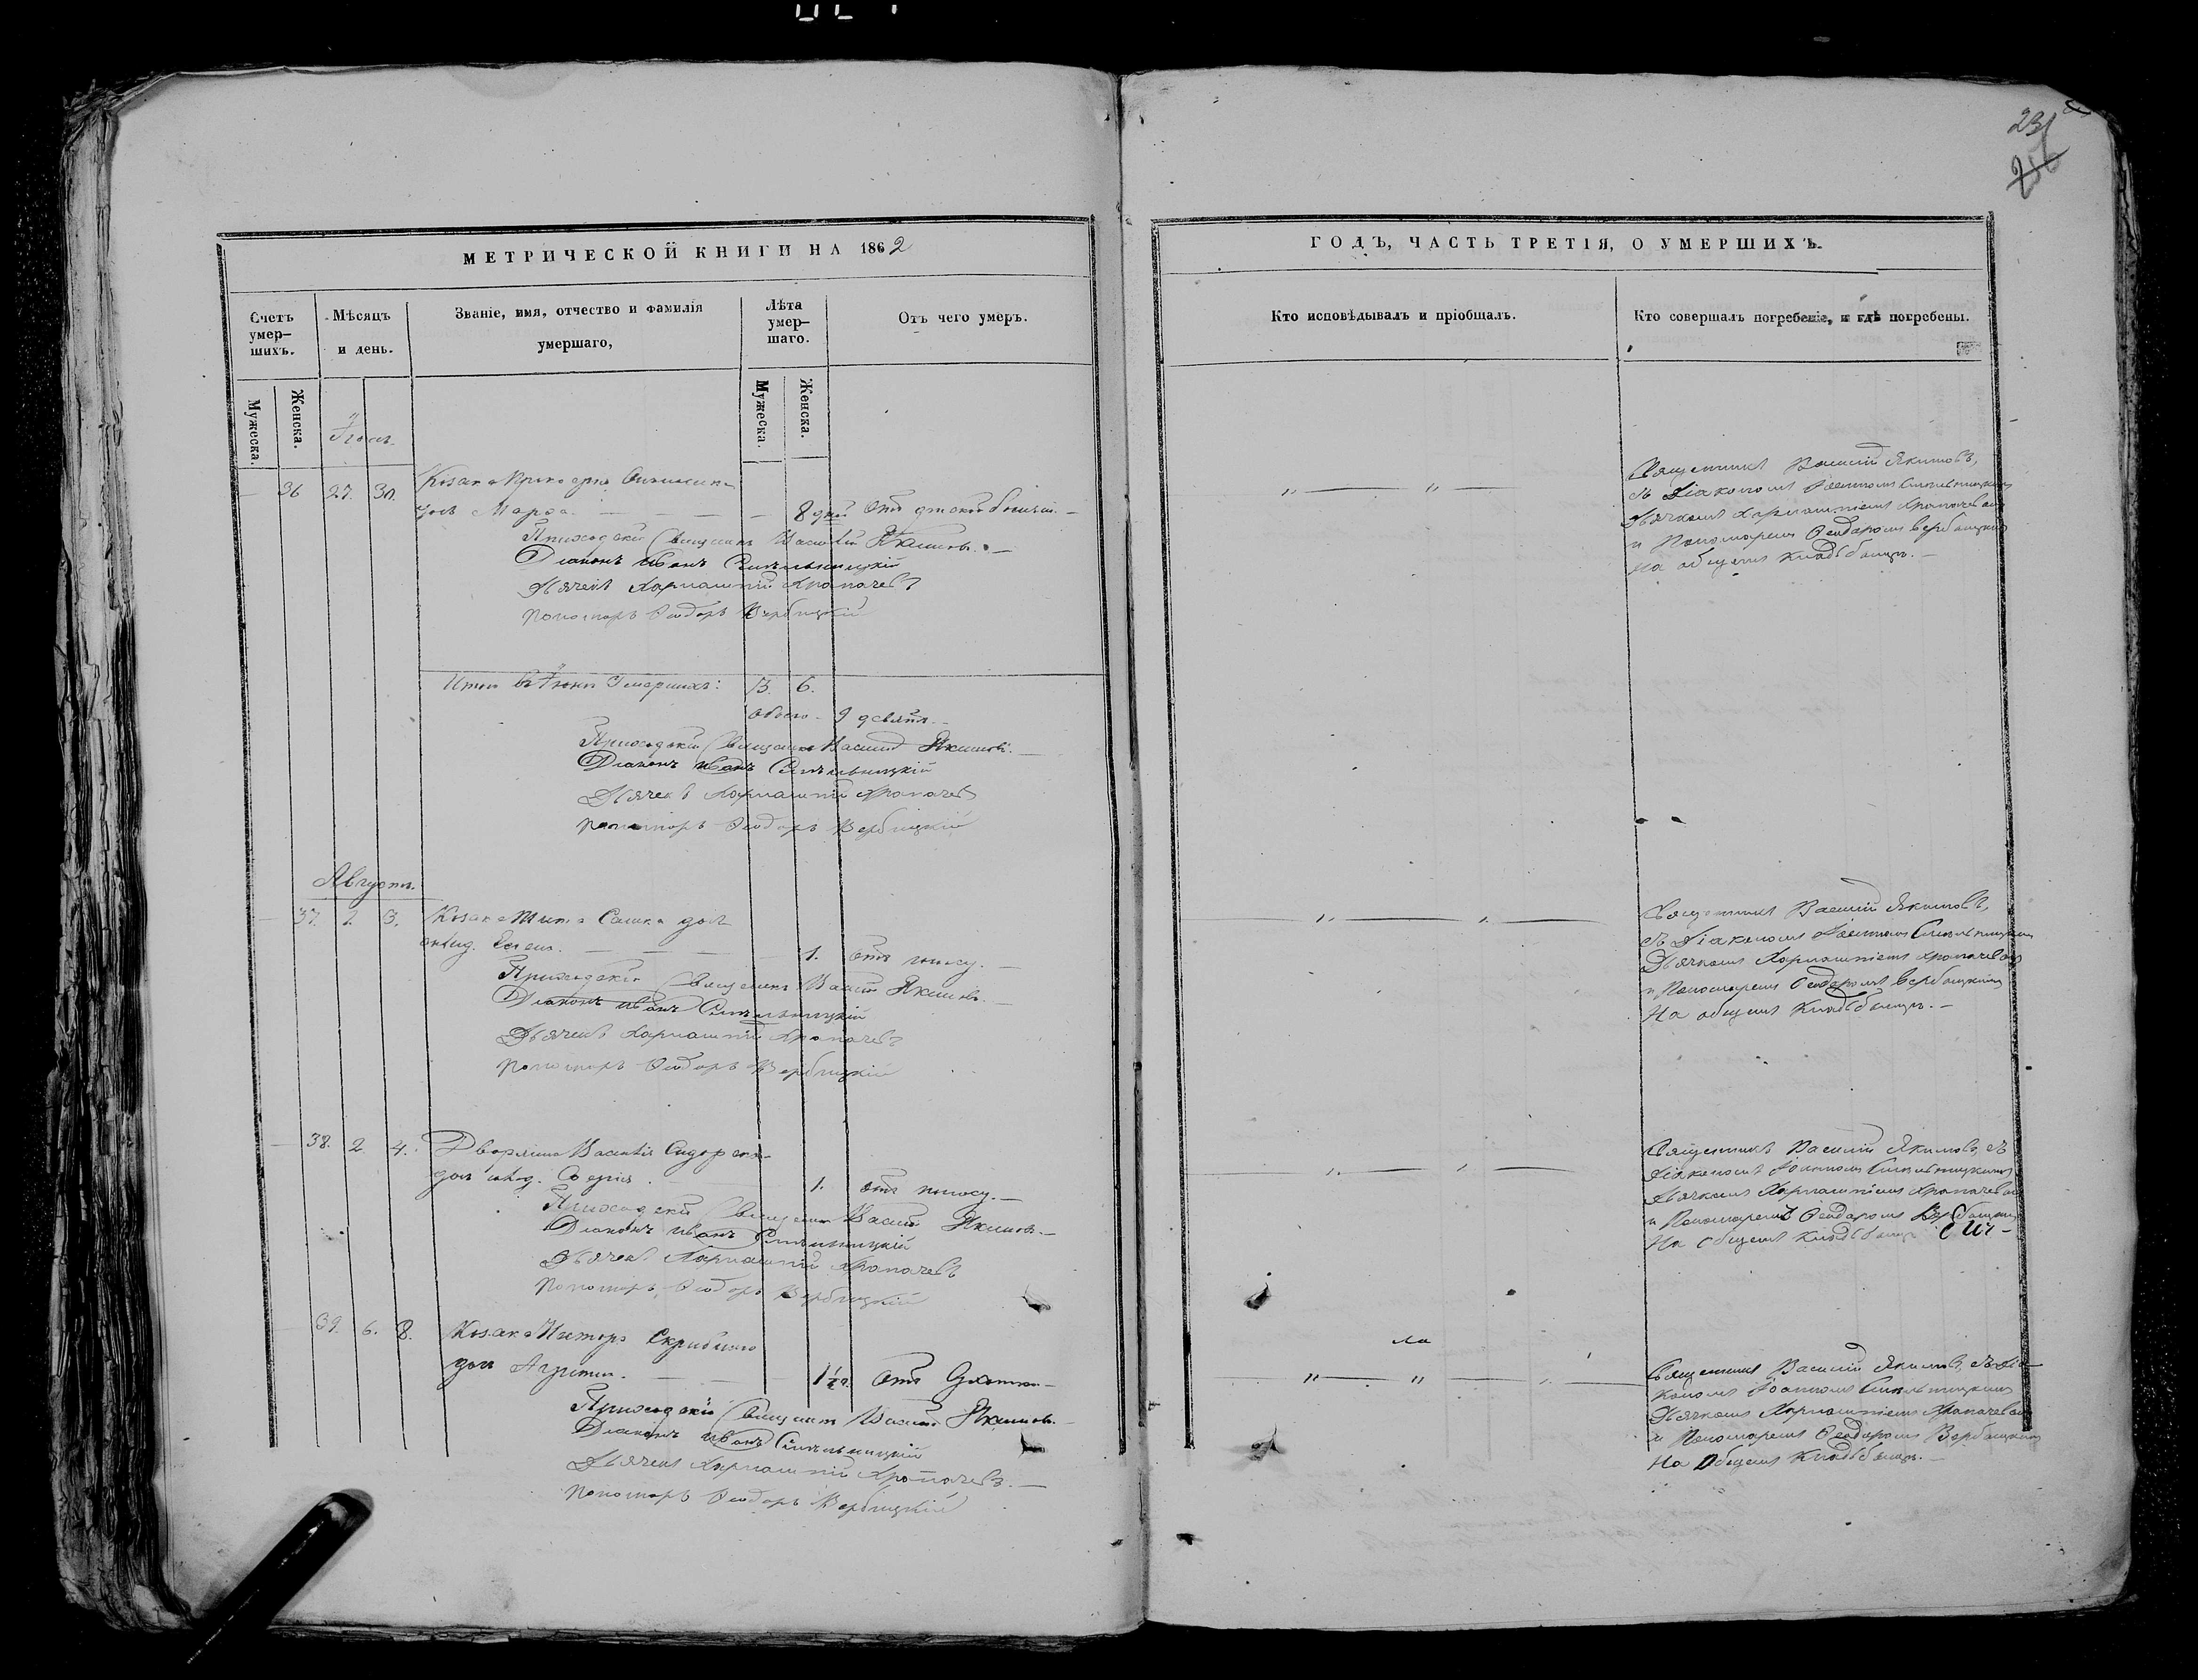 231
МЕТРИЧЕСКОЙ КНИГИ НА 1862
ГОДЪ, ЧАСТЬ ТРЕТІЯ, О УМЕРШИХЪ.
Счетъ умер-
шихъ.
Мѣсяцъ
и день.
Званіе, имя, отчество и фамилія
умершаго,
Лѣта
умер-
шаго.
Отъ чего умеръ.
Кто исповѣдывалъ и пріобщалъ.
Кто совершалъ погребеніе, и гдѣ погребены.
Мужеска.
Женска.
Мужеска.
Женска.
36 27. 30. Козака
дочь Марѳа. 8 дней отъ
Приходскій Священникъ Василій Якимовъ.
Діаконъ Иванъ Синельницкій
Дьячекъ Харлампій Храпачевъ
Пономарь Ѳеодоръ Вербицкій
Священникъ Василій Якимовъ,
съ Діакономъ Іоанномъ Синельницкимъ
Дьячкомъ Харлампіемъ Храпачевымъ
и Пономаремъ Ѳеодоромъ Вербицкимъ
На общемъ кладбищѣ.
Итого въ умершихъ: 3. 6.
Обоего 9
Приходскій Священникъ Василій Якимовъ.
Діаконъ Иванъ Синельницкій
Дьячекъ Харлампій Храпачевъ
Пономарь Ѳеодоръ Вербицкій
Августъ.
37. 1. 3. Козака дочь
1. отъ поносу.
Приходскій Священникъ Василій Якимовъ.
Діаконъ Иванъ Синельницкій
Дьячекъ Харлампій Храпачевъ
Пономарь Ѳеодоръ Вербицкій
Священникъ Василій Якимовъ,
съ Діакономъ Іоанномъ Синельницкимъ
Дьячкомъ Харлампіемъ Храпачевымъ
и Пономаремъ Ѳеодоромъ Вербицкимъ
На общемъ кладбищѣ.
38. 2 4. Дворянина Василія
дочь 1. отъ поносу.
Приходскій Священникъ Василій Якимовъ.
Діаконъ Иванъ Синельницкій
Дьячекъ Харлампій Храпачевъ
Пономарь Ѳеодоръ Вербицкій
Священникъ Василій Якимовъ, съ
Діакономъ Іоанномъ Синельницкимъ
Дьячкомъ Харлампіемъ Храпачевымъ
и Пономаремъ Ѳеодоромъ Вербицкимъ
На общемъ кладбищѣ
39. 6. 8. Козака
дочь 1½ отъ
Приходскій Священникъ Василій Якимовъ.
Діаконъ Иванъ Синельницкій
Дьячекъ Харлампій Храпачевъ.
Пономарь Ѳеодоръ Вербицкій
Священникъ Василій Якимовъ, съ Діа-
кономъ Іоанномъ Синельницкимъ
Дьячкомъ Харлампіемъ Храпачевымъ
и Пономаремъ Ѳеодоромъ Вербицкимъ
На Общемъ кладбищѣ.